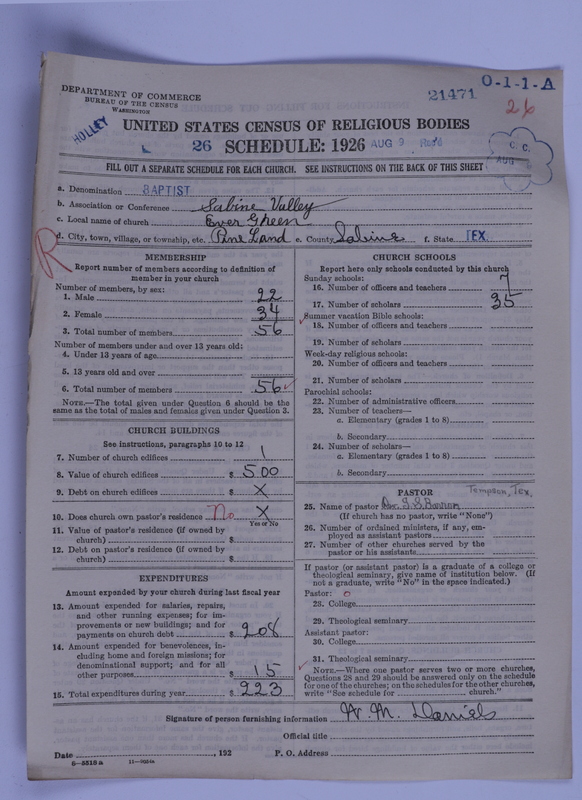 DEPARTMENT OF COMMERCE
BUREAU OF THE CENSUS
WASHINGTON
21471
0-1-1-A
26
HOLLEY
UNITED STATES CENSUS OF RELIGIOUS BODIES
26 SCHEDULE: 1926 AUG 9 Rec'd
C. C.
AUG
FILL OUT A SEPARATE SCHEDULE FOR EACH CHURCH. SEE INSTRUCTIONS ON THE BACK OF THIS SHEET
a. Denomination BAPTIST
b. Association or Conference Sabine Valley
c. Local name of church Ever Green
d. City, town, village, or township, etc. Pine Land e. County Sabine f. State TEX.
R
MEMBERSHIP
Report number of members according to definition of
member in your church
Number of members, by sex:
1. Male 22
2. Female 34
3. Total number of members 56
Number of members under and over 13 years old:
4. Under 13 years of age
5. 13 years old and over
6. Total number of members 56 ✓
NOTE.—The total given under Question 6 should be the
same as the total of males and females given under Question 3.
CHURCH BUILDINGS
See instructions, paragraphs 10 to 12
7. Number of church edifices 1
8. Value of church edifices $ 500
9. Debt on church edifices $ X
10. Does church own pastor's residence No X
Yes or No
11. Value of pastor's residence (if owned by
church) $
12. Debt on pastor's residence (if owned by
church) $
EXPENDITURES
Amount expended by your church during last fiscal year
13. Amount expended for salaries, repairs,
and other running expenses; for im-
provements or new buildings; and for
payments on church debt $ 208
14. Amount expended for benevolences, in-
cluding home and foreign missions; for
denominational support; and for all
other purposes $ 15
15. Total expenditures during year $ 223
CHURCH SCHOOLS
Report here only schools conducted by this church
Sunday schools:
16. Number of officers and teachers 7
17. Number of scholars 35
Summer vacation Bible schools:
18. Number of officers and teachers
19. Number of scholars
Week-day religious schools:
20. Number of officers and teachers
21. Number of scholars
Parochial schools:
22. Number of administrative officers
23. Number of teachers—
a. Elementary (grades 1 to 8)
b. Secondary
24. Number of scholars—
a. Elementary (grades 1 to 8)
b. Secondary
PASTOR Tempson, Tex.
25. Name of pastor
(If church has no pastor, write "None")
26. Number of ordained ministers, if any, em-
ployed as assistant pastors
27. Number of other churches served by the
pastor or his assistants
If pastor (or assistant pastor) is a graduate of a college or
theological seminary, give name of institution below. (If
not a graduate, write "No" in the space indicated.)
Pastor: o
28. College
29. Theological seminary
Assistant pastor:
30. College
31. Theological seminary
NOTE.—Where one pastor serves two or more churches,
Questions 28 and 29 should be answered only on the schedule
for one of the churches; on the schedules for the other churches,
write "See schedule for church."
Signature of person furnishing information W. M. Daniels
Official title
Date , 192 P. O. Address
6-3318 a 11-9024a